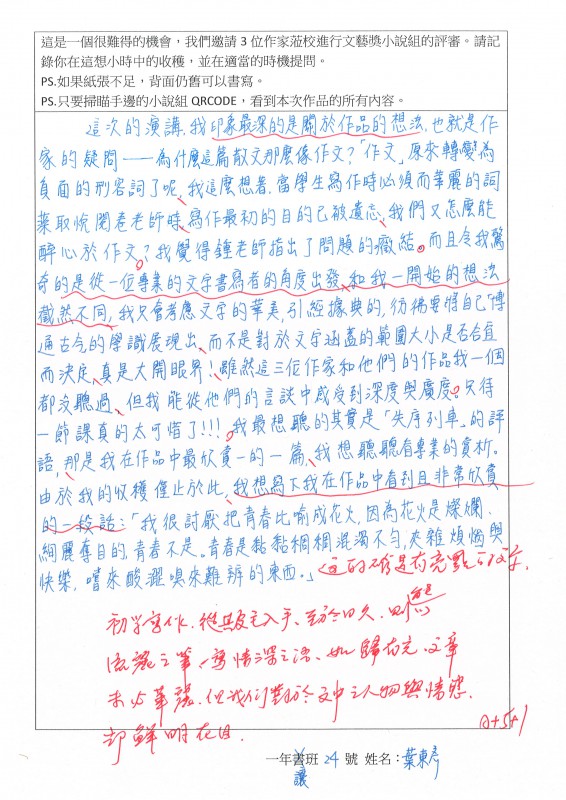 這是一個很難得的機會，我們邀請 3 位作家蒞校進行文藝獎小說組的評審。請記
錄你在這想小時中的收穫，並在適當的時機提問。
PS.如果紙張不足，背面仍舊可以書寫。
PS.只要掃瞄手邊的小說組 QRCODE，看到本次作品的所有內容。
這次的演講，我印象最深的是關於作品的想法，也就是作
家的疑問——為什麼這篇散文那麼像作文？「作文」原來轉變為
負面的形容詞了呢，我這麼想著，當學生寫作時必須而華麗的詞
藻取悅閱卷老師時，寫作最初的目的已被遺忘，我們又怎麼能
醉心於作文？我覺得鍾老師指出了問題的癥結。而且令我驚
奇的是從一位專業的文字書寫者的角度出發，和我一開始的想法
截然不同，我只會考慮文字的華美，引經據典的，彷彿要將自己「博
通古今的學識展現出，而不是對於文字涵蓋的範圍大小是否合宜
而決定，真是大開眼界！雖然這三位作家和他們的作品我一個
都沒聽過，但我能從他們的言談中感受到深度與廣度。只待
一節課真的太可惜了!!!，我最想聽的其實是「失序列車」的評
語，那是我在作品中最欣賞一的一篇，我想聽聽看專業的賞析。
由於我的收穫僅止於此，我想寫下我在作品中看到且非常欣賞
的一段話：「我很討厭把青春比喻成花火，因為花火是燦爛、
絢麗奪目的，青春不是。青春是黏黏稠稠混濁不勻，夾雜煩惱與
快樂，嚐來酸澀嗅來難辨的東西。」
這的確是有亮點的文字。
初學寫作，從模毛入手，至於日久，
流麗之筆，寫情深之語，如歸有光，文章
未必華麗，但我們對於文中之人物與情態，
卻鮮明在目。
A+5+1
一年書班 24 號 姓名：葉東彥
讓